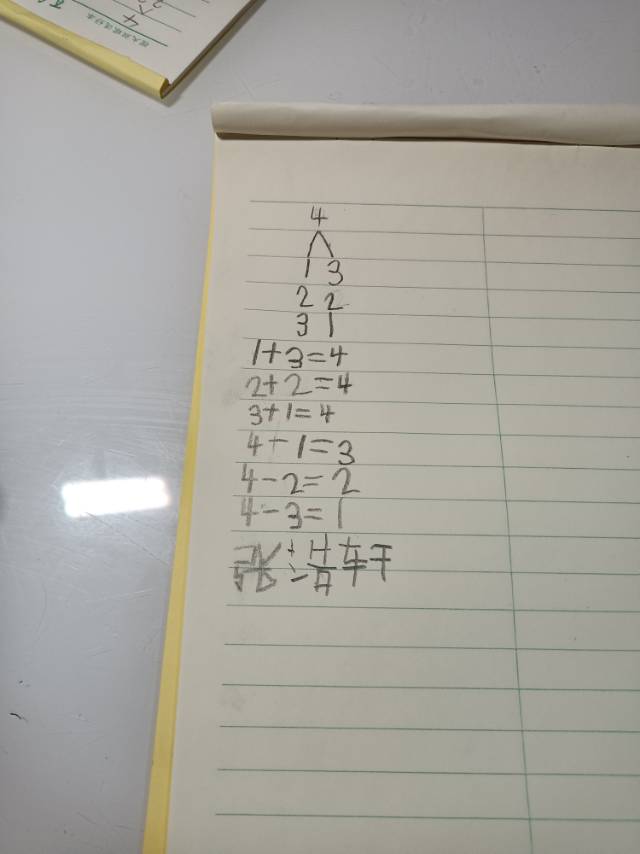 4
1 3
2 2
3 1
1+3=4
2+2=4
3+1=4
4-1=3
4-2=2
4-3=1
4